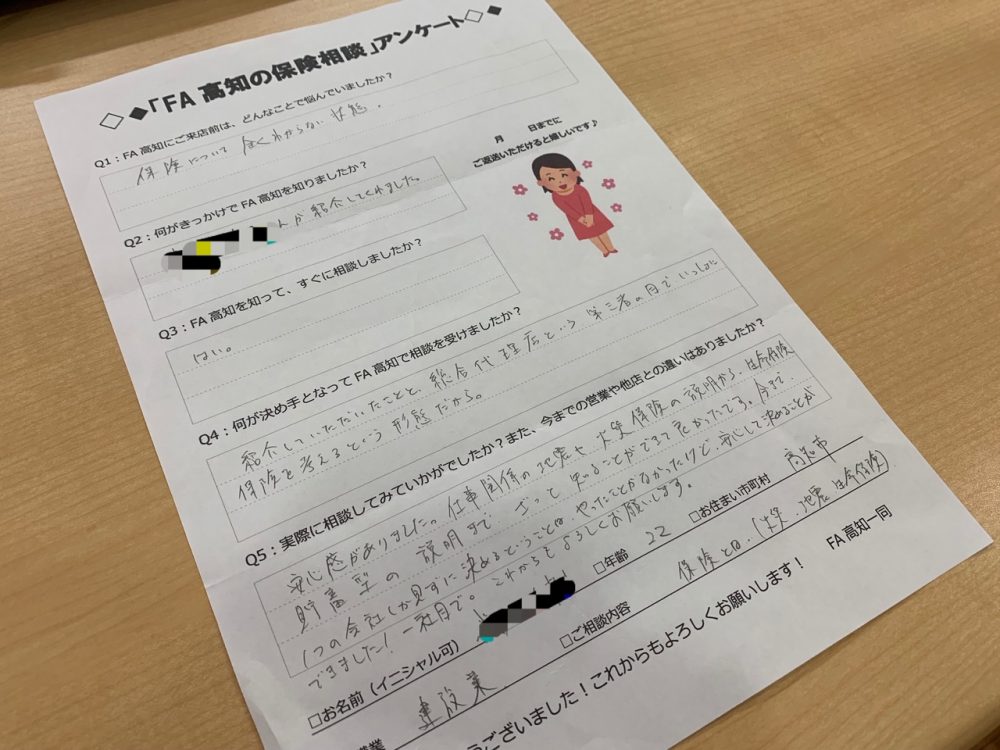 ◇◆「FA 高知の保険相談」アンケート◇◆
Q1：FA 高知にご来店前は、どんなことで悩んでいましたか？
保険について 全くわからない状態。
月 日までに
ご返送いただけると嬉しいです♪
Q2：何がきっかけで FA 高知を知りましたか？
んが紹介してくれました。
Q3：FA 高知を知って、すぐに相談しましたか？
はい。
Q4：何が決め手となって FA 高知で相談を受けましたか？
紹介していただいたことと、総合代理店という第三者の目でいっしょに
保険を考えるという形態だから。
Q5：実際に相談してみていかがでしたか？また、今までの営業や他店との違いはありましたか？
安心感がありました。仕事関係の地震や火災保険の説明から、生命保険
貯蓄型の説明まで ざって知ることができて良かったです。今まで、
1つの会社しか見ずに決めるということはやったことがなかったけど、安心して決めることが
できました！一社目で。これからもよろしくお願いします。
□お名前（イニシャル可）
□年齢 22
□お住まい市町村 高知市
業 建設業
□ご相談内容 保険とは、(火災、地震、生命保険)
うございました！これからもよろしくお願いします！
FA 高知一同